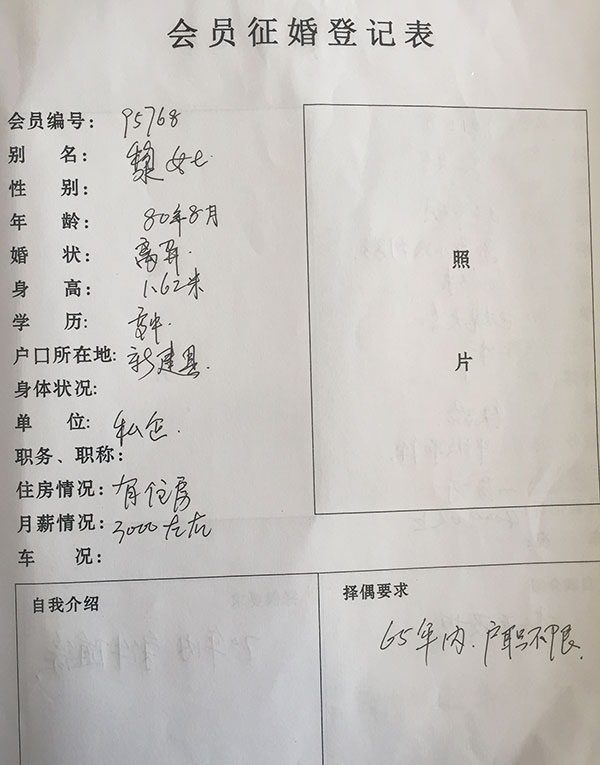 会员征婚登记表
会员编号: 95768
别 名: 黎女士
性 别:
年 龄: 80年8月
婚 状: 离异.
身 高: 1.62米
学 历: 高中.
户口所在地: 新建县.
身体状况:
单 位: 私企.
职务、职称:
住房情况: 有住房
月薪情况: 3000左右
车 况:
照
片
自我介绍
择偶要求
65年内.户职不限.